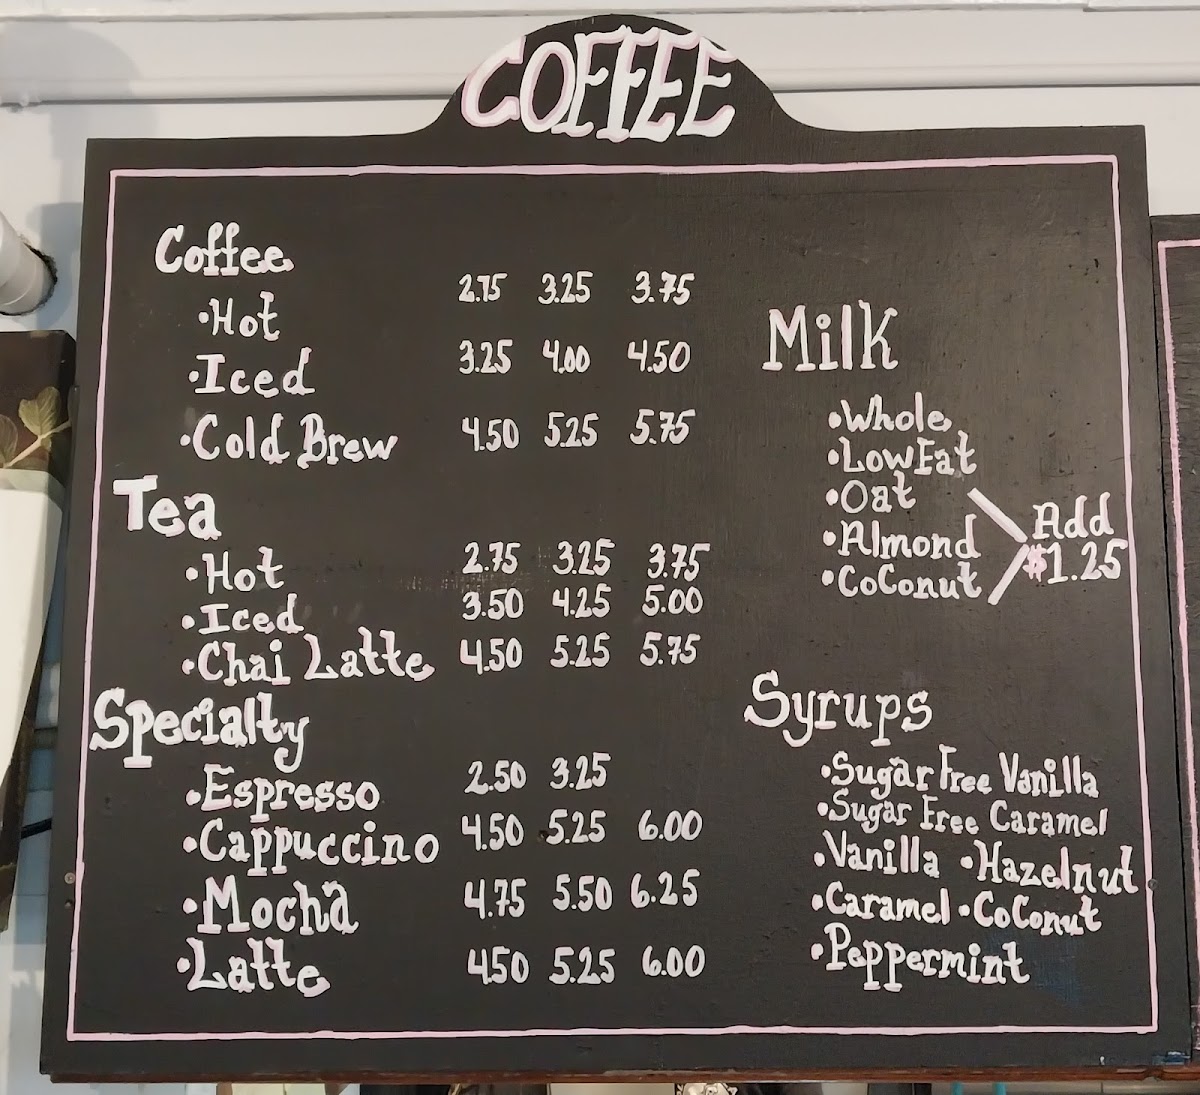 COFFEE
Coffee
•Hot 2.75 3.25 3.75
•Iced 3.25 4.00 4.50
•Cold Brew 4.50 5.25 5.75
Tea
•Hot 2.75 3.25 3.75
•Iced 3.50 4.25 5.00
•Chai Latte 4.50 5.25 5.75
Specialty
•Espresso 2.50 3.25
•Cappuccino 4.50 5.25 6.00
•Mocha 4.75 5.50 6.25
•Latte 4.50 5.25 6.00
Milk
•Whole
•LowFat
•Oat
•Almond
•CoConut
Add
$1.25
Syrups
•Sugar Free Vanilla
•Sugar Free Caramel
•Vanilla •Hazelnut
•Caramel •CoConut
•Peppermint